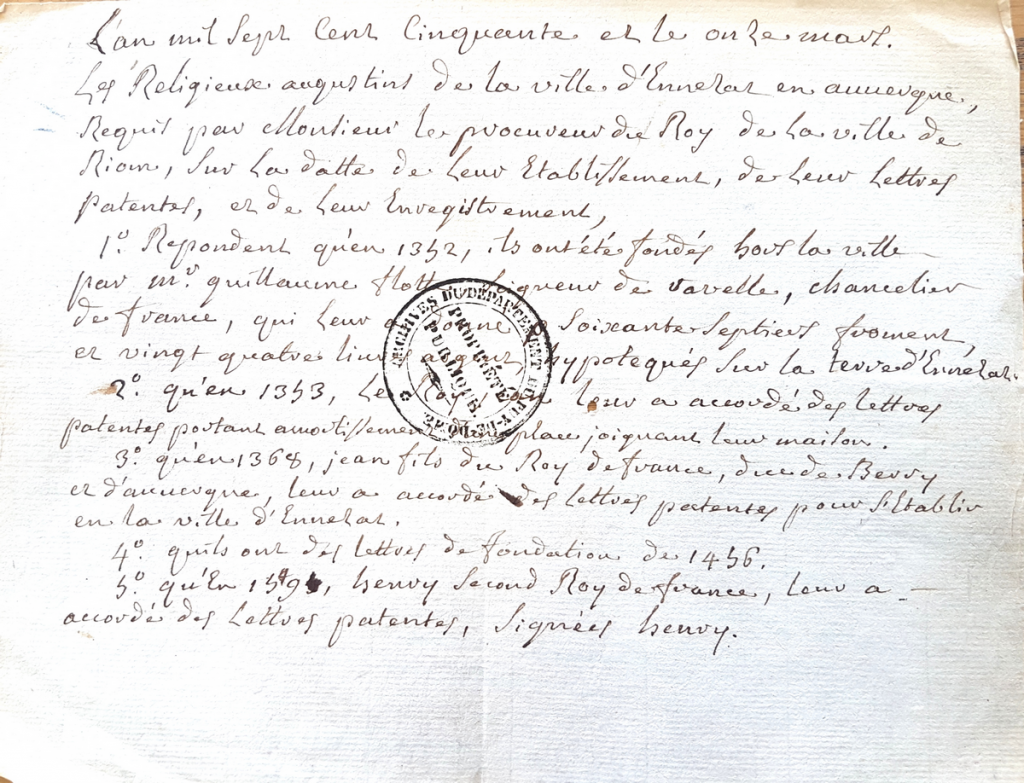 L'an mil Sept Cent Cinquante et le onze mars.
Les Religieux augustins de la ville d'Ennezat en auuergne,
Requis par Monsieur le procureur du Roy de la ville de
Riom, Sur la datte de leur Etablissement, de leur lettres
patentes, et de leur Enregistrement,
1º. Repondent qu'en 1352, ils ont été fondés hors la ville
par mr. guillaume flotte Seigneur de ravelle, chancelier
de france, qui leur a donne Soixante Septiers froment,
et vingt quatre livres argent, hypotequés Sur la terre d'Ennézat.
2º. qu'en 1353, Le Roy leur a accordé des lettres
patentes portant amortissement place joignant leur maison.
3º. qu'en 1368, jean fils du Roy de france, duc de Berry
et d'auuergne, leur a accordé des lettres patentes pour S'Etablir
en la ville d'Ennezat.
4º. quils ont des lettres de fondation de 1456.
5º. qu'En henry Second Roy de france, leur a
accordé des lettres patentes, Signées henry.
ARCHIVES DU DÉPARTEMENT DU PUY-DE-DÔME
PROPRIÉTÉ
PUBLIQUE